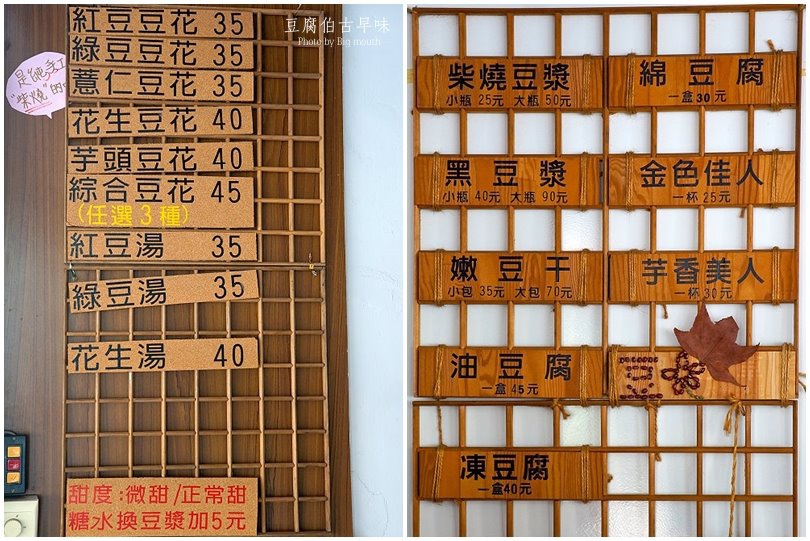 紅豆豆花 35
綠豆豆花 35
薏仁豆花 35
花生豆花 40
芋頭豆花 40
綜合豆花 45
(任選3種)
紅豆湯 35
綠豆湯 35
花生湯 40
甜度:微甜/正常甜
糖水換豆漿加5元
是純手工
"柴燒"的
豆腐伯古早味
Photo by Big mouth
柴燒豆漿
小瓶 25元 大瓶 50元
黑豆漿
小瓶 40元 大瓶 90元
嫩豆干
小包 35元 大包 70元
油豆腐
一盒 45元
凍豆腐
一盒40元
綿豆腐
一盒 30元
金色佳人
一杯 25元
芋香美人
一杯 30元
豆